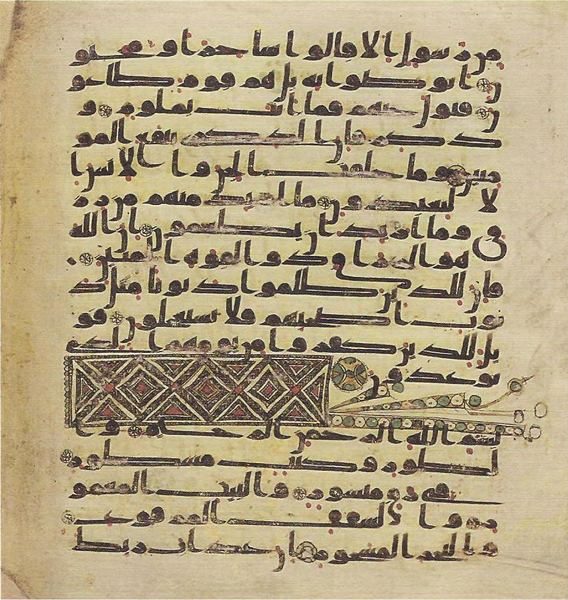 من رسول الا قالوا ساحر او مجنو
ن اتواصوا به بل هم قوم طاغو
ن فتول عنهم فما انت بملوم و
ذكر فان الذكرى تنفع المو
منين وما خلقت الجن والانس ا
لا ليعبدون ما اريد منهم من رز
ق وما اريد ان يطعمون ان الله
هو الرزاق ذو القوة المتين
فان للذين ظلموا ذنوبا مثل ذ
نوب اصحبهم فلا يستعجلون فو
يل للذين كفروا من يومهم الذي
يوعدون
بسم الله الرحمن الرحيم وا
لطور وكتب مسطور
في رق منشور والبيت المعمو
ر والسقف المرفوع
والبحر المسجور ان عذاب ربك